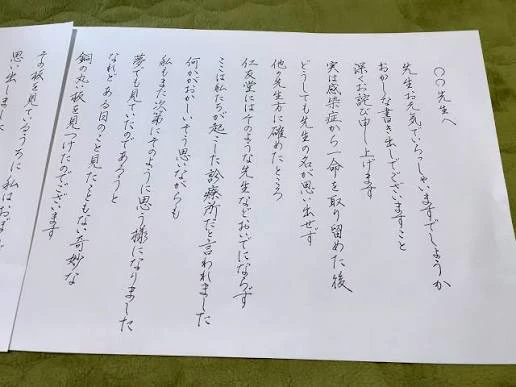 〇〇先生へ
先生お元気でいらっしゃいますでしょうか
おかしな書き出しでございますこと
深くお詫び申し上げます
実は感染症から一命を取り留めた後
どうしても先生の名が思い出せず
他の先生方に確めたところ
仁友堂にはそのような先生などおいでにならず
ここは私たちが起こした診療所だと言われました
何かがおかしいそう思いながらも
私もまた次第にそのように思う様になりました
夢でも見ていたのであろうと
なれどある日のこと見たこともない奇妙な
銅の丸い板を見つけたのでございます
その板を見ているうちに私はおぼろ
思い出しました